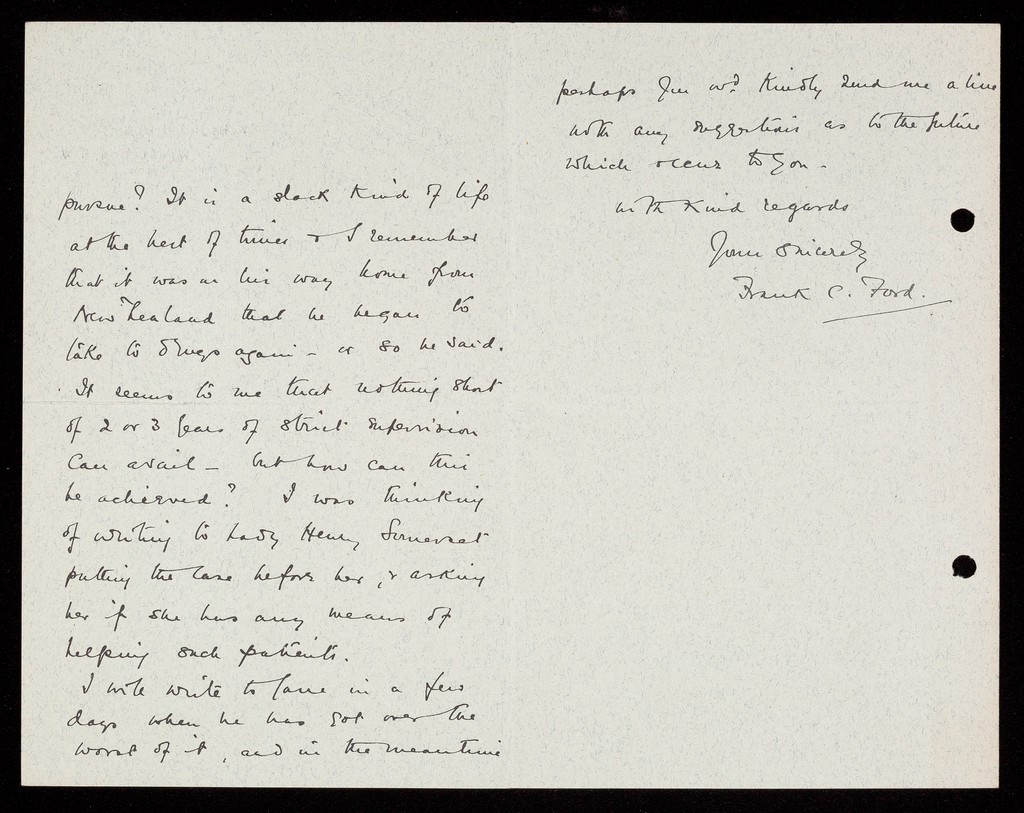 pursue? It is a slack kind of life
at the best of times & I remember
that it was on his way home from
New Zealand that he began to
take to drugs again - or so he said.
It seems to me that nothing short
of 2 or 3 years of strict supervision
can avail - but how can this
be achieved? I was thinking
of writing to Lady Henry Somerset
putting the case before her, & asking
her if she has any means of
helping such patients.
I will write to Lane in a few
days when he has got over the
worst of it, and in the meantime
perhaps you wd. kindly send me a line
with any suggestions as to the future
which occur to you -
with kind regards
Yours sincerely
Frank C. Ford.